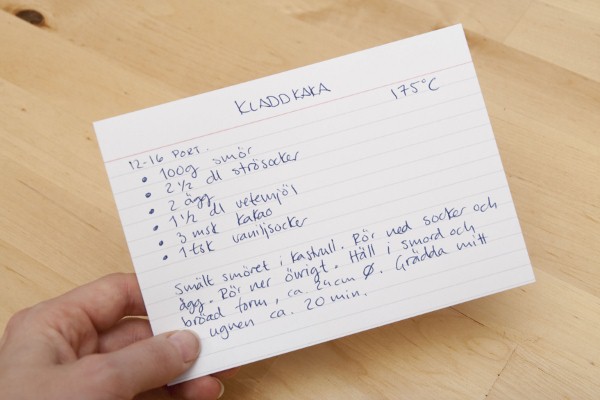 KLADDKAKA
175°C
12-16 PORT.
• 100g smör
• 2 1/2 dl strösocker
• 2 ägg
• 1 1/2 dl vetemjöl
• 3 msk kakao
• 1 tsk vaniljsocker
Smält smöret i kastrull. Rör ned socker och
ägg. Rör ner övrigt. Häll i smord och
bröad form, ca. 24cm Ø. Grädda mitt
i ugnen ca. 20 min.